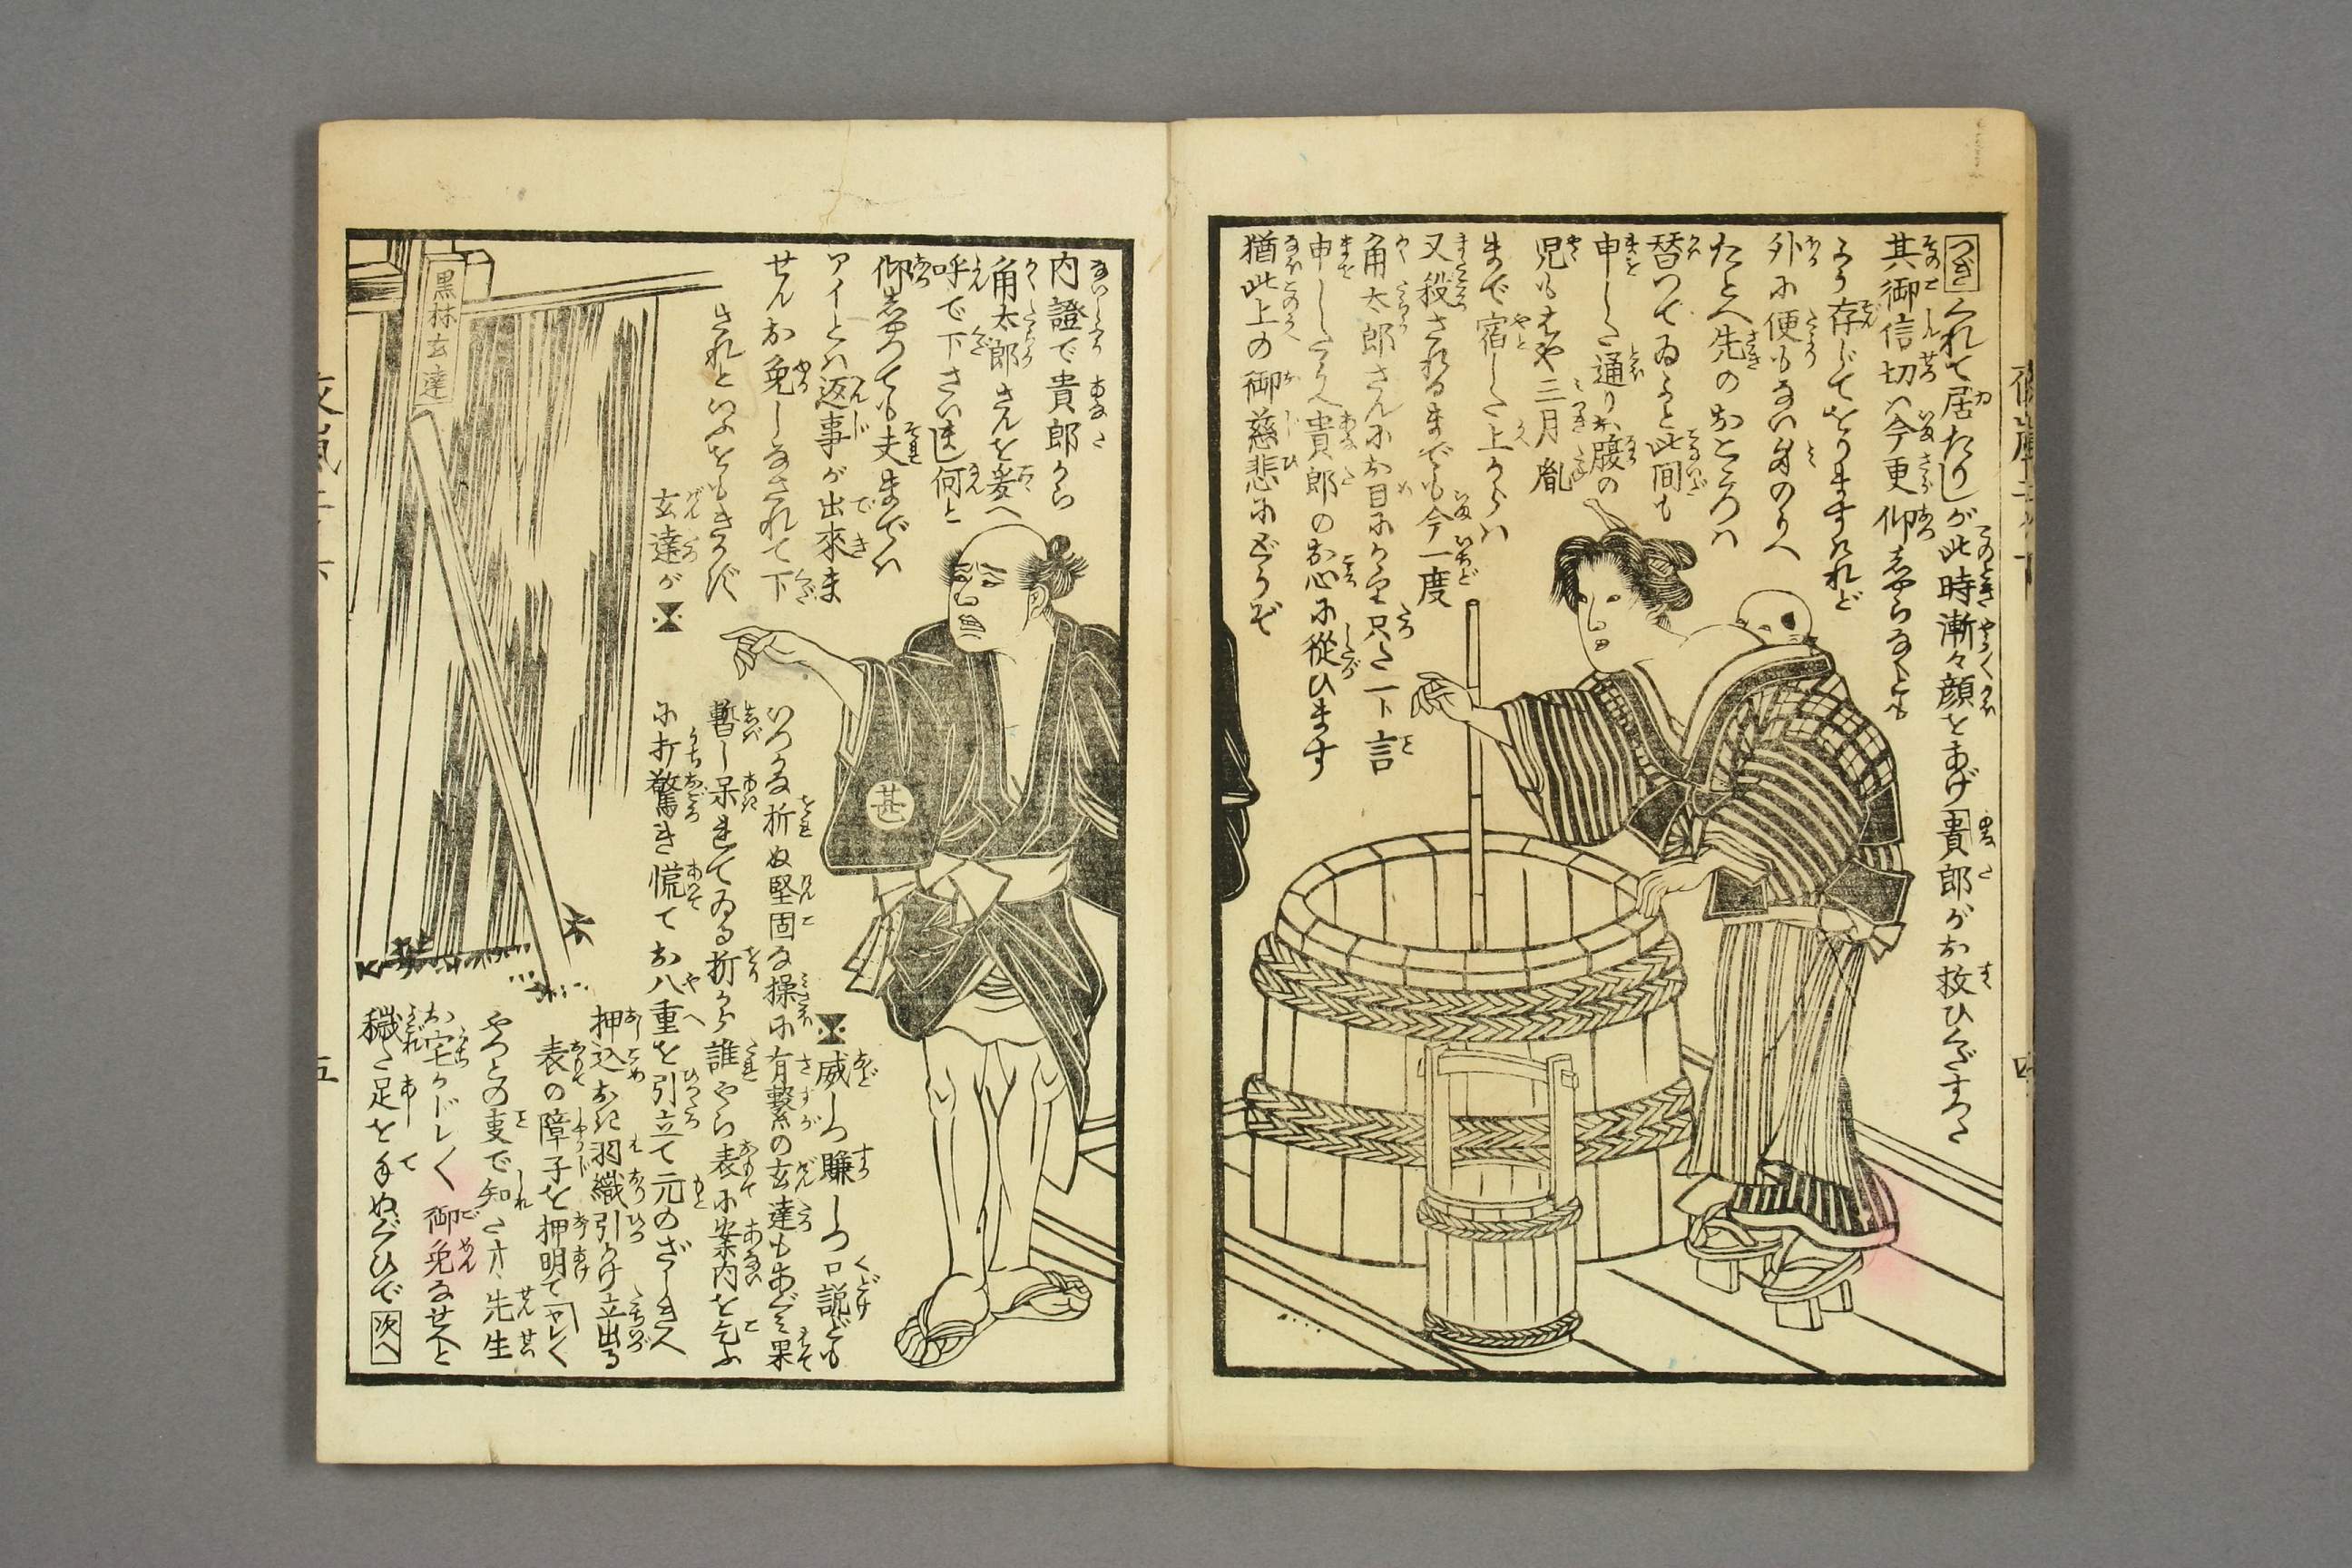 つぎ くれて居たりしが此時漸々顔をあげ「貴郎がお救ひくだすつた
其御信切ハ今更仰しやらなくとも
よう存じてをりますけれど
外に便もない身のうへ
たとへ先のおところハ
替つてゐようと此間も
申した通りお腹の
児もはや三月胤
まで宿した上からハ
又殺されるまでも今一度
角太郎さんにお目にかゝり只た一ト言
申したうへ貴郎のお心に従ひます
猶此上の御慈悲にどうぞ
内證で貴郎から
角太郎さんを爰へ
呼で下さいまし何と
仰しやつても夫まででハ
アイとハ返事が出來ま
せんお免しなされて下
されといふをもきかず
玄達が
威しつ賺しつ口説ども
いつかな折ぬ堅固な操に有繋の玄達もあぐミ果
暫し呆れてゐる折から誰やら表に案内を乞ふ
に打驚き慌てお八重を引立て元のざしきへ
押込おき羽織引かけ立出る
表の障子を押明て「ヤレ〳〵
やつとの事で知た才ヽ先生
お宅かドレ〳〵御免なせへと
穢た足を手ぬぐひで 次へ
黒林玄達
甚
五